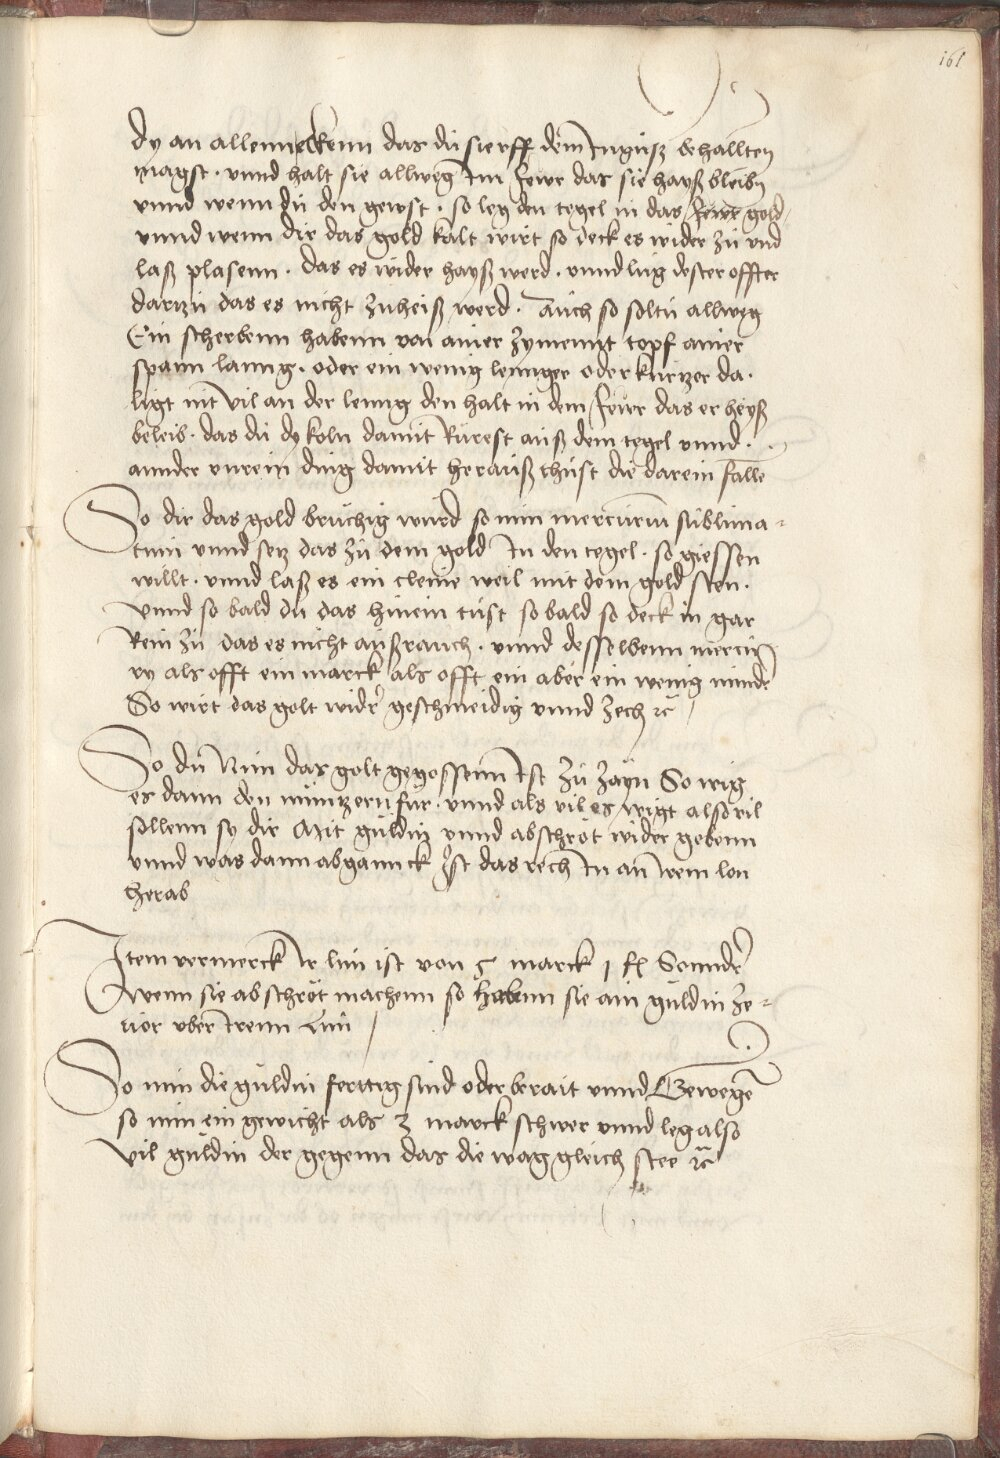 161
dy an allenn eckenn das du sie vff dem Inguß behallten
magst · vnnd halt sie allweg Im fewr das sie hayß bleibn
vnnd wenn du den gewst · so leg den tegel in das fewr gold
vnnd wenn dir das gold kalt wirt so deck es wider zu vnd
laß plasenn · das es wider hayß werd · vnnd lug dester offter
dartzu das es nicht zuheiß werd · Auch so soltu allweg
Ein scherbenn habenn von ainer zymennt topf ainer
spann lanng · oder ein wenig lennger oder kurtzer da ·
ligt nit vil an der leng den halt in dem fewr das er heyß
beleib · das du dy koln damit Rurest auß dem tegel vnnd ·
annder vnrein ding damit herauß thust die darein falle
So dir das gold bruchig wurd so nim mercurium sublima-
tum vnnd setz das zu dem gold In den tegel · so giessen
willt · vnnd laß es ein cleine weil mit dem gold sten ·
Vnnd so bald du das hinein tust so bald so deck in gar
Rein zu das es nicht außrauch · vnnd desselbenn mercu
ry als offt ein marck als offt ein aber ein wenig minder
So wirt das golt wider geschmeidig vnnd zech ꝛc
So du Nun das golt gegossenn Ist zu zayn So wig
es dann den müntzern fur · vnnd als vil es wigt also vil
sollenn sy dir Mit guldin vnnd abschrot wider gebenn
vnnd was dann abganck Ist das rech In an Irem lon
herab
Item vermerck Ir lun ist von 5 marck 1 fl Sonnder
Wenn sie abschrot machenn so habenn sie ain guldin ze-
uor vber Irenn Lun
So nun die guldin ferttig sind oder berait vnnd Gewege
so nim ein gewicht als 3 marck schwer vnnd leg also
vil guldin der gegenn das die wag gleich stee ꝛc